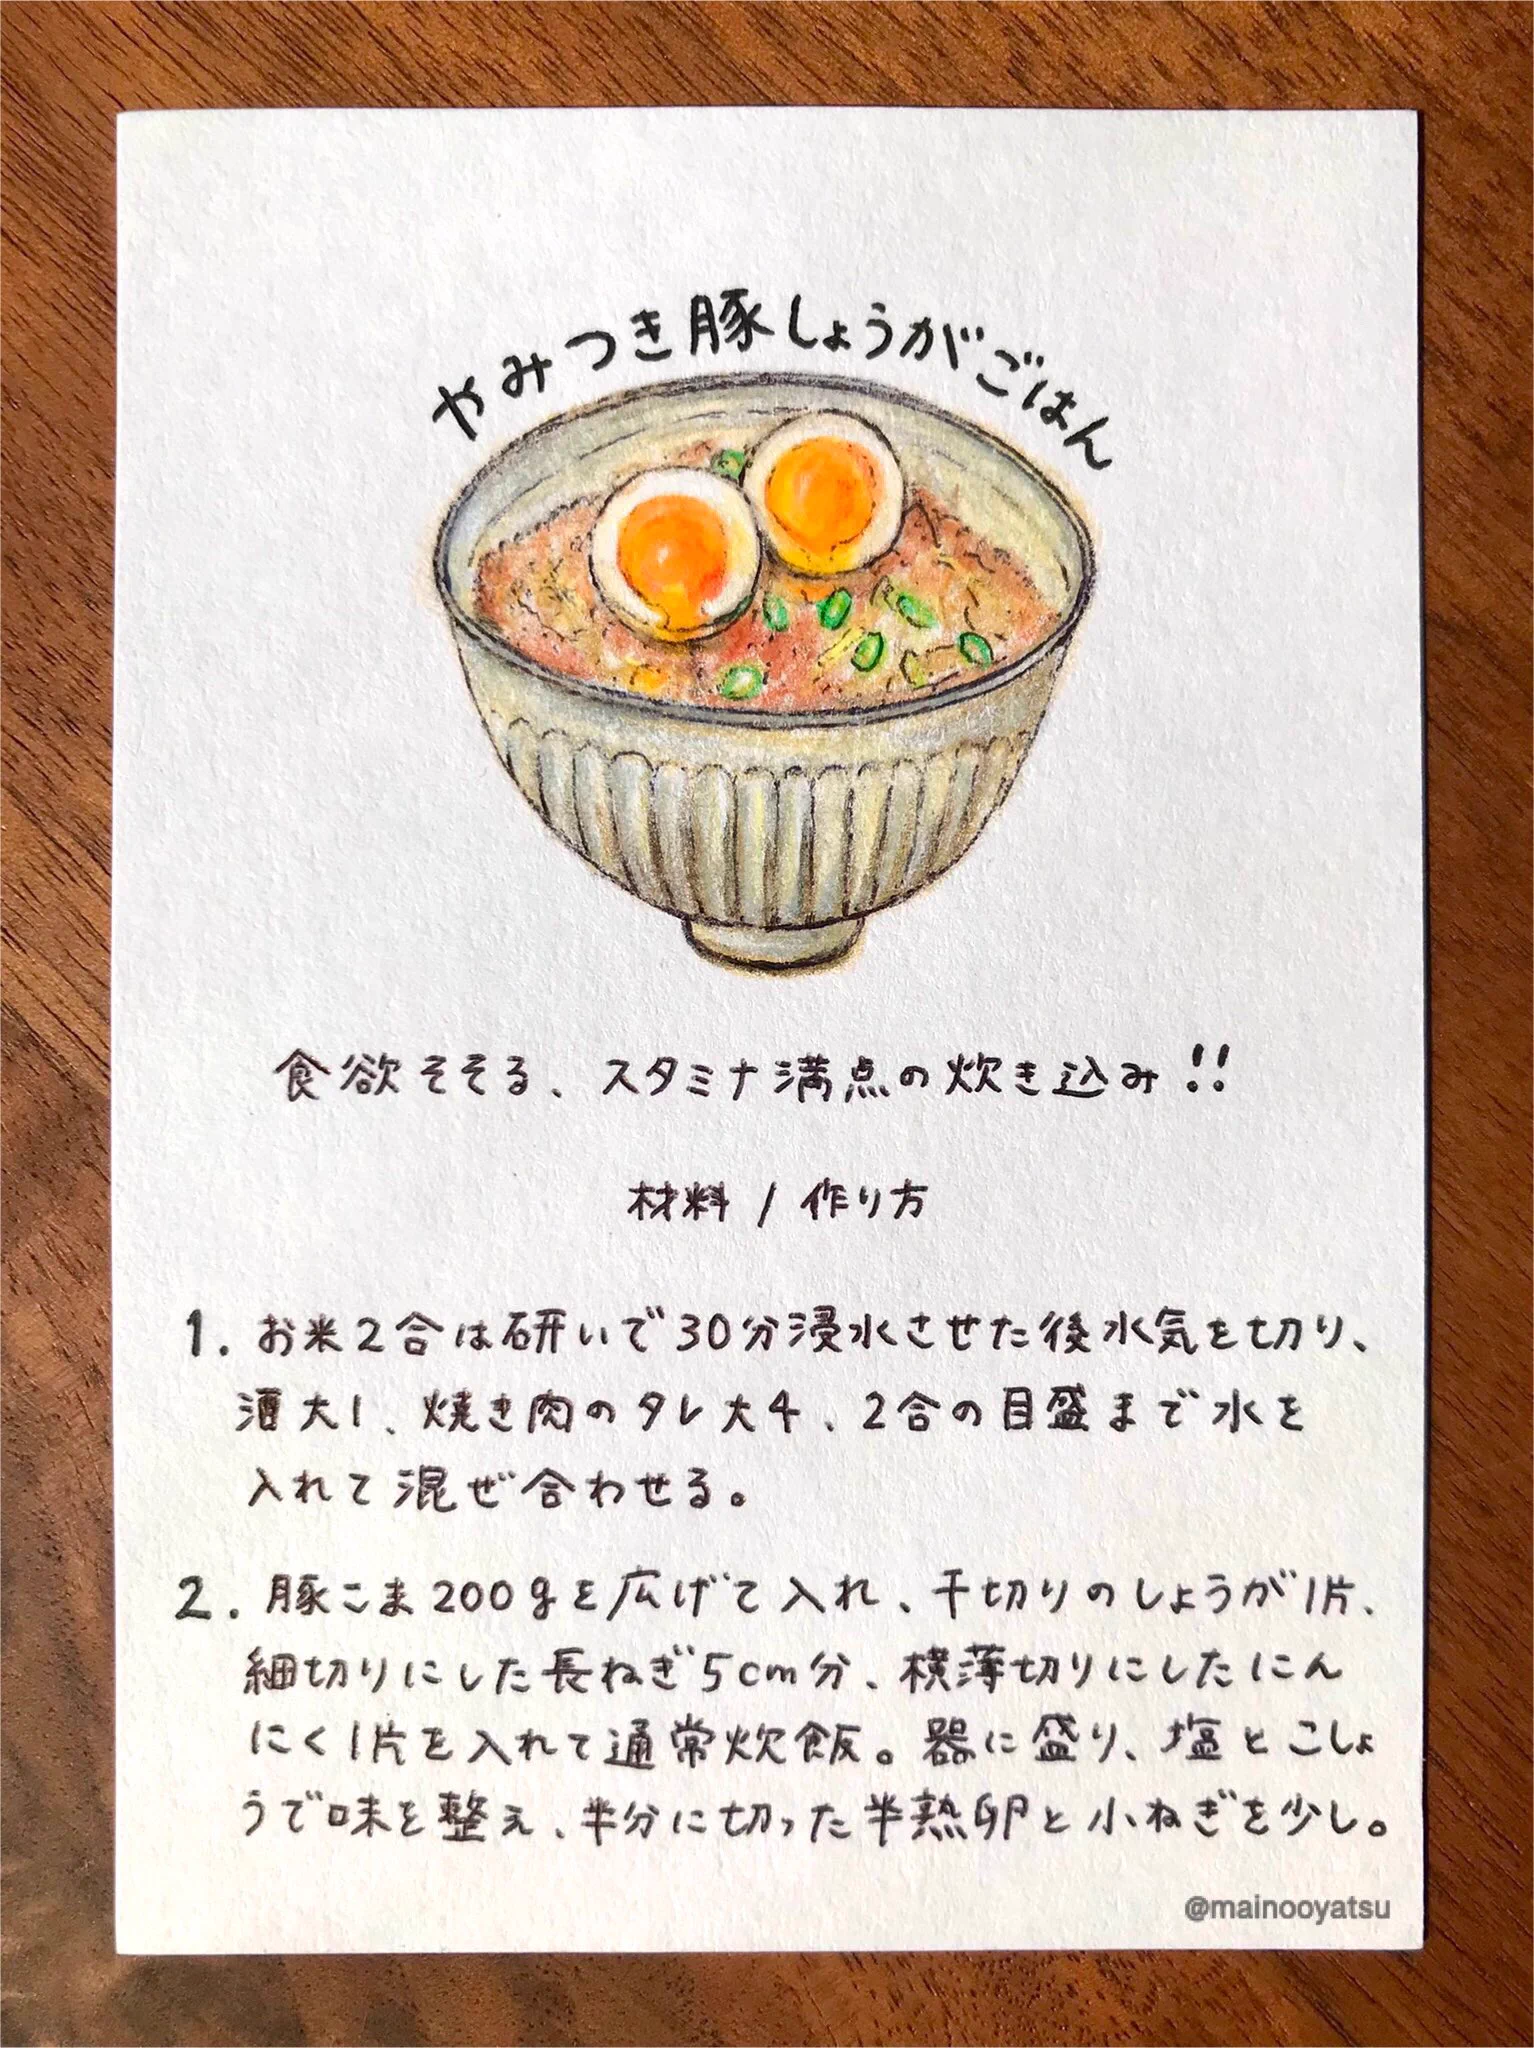 やみつき豚しょうがごはん
食欲そそる、スタミナ満点の炊き込み!!
材料 / 作り方
1. お米2合は研いで30分浸水させた後水気を切り、
酒大1、焼き肉のタレ大4、2合の目盛まで水を
入れて混ぜ合わせる。
2. 豚こま200gを広げて入れ、千切りのしょうが1片、
細切りにした長ねぎ5cm分、横薄切りにしたにん
にく1片を入れて通常炊飯。器に盛り、塩とこしょ
うで味を整え、半分に切った半熟卵と小ねぎを少し。
@mainooyatsu